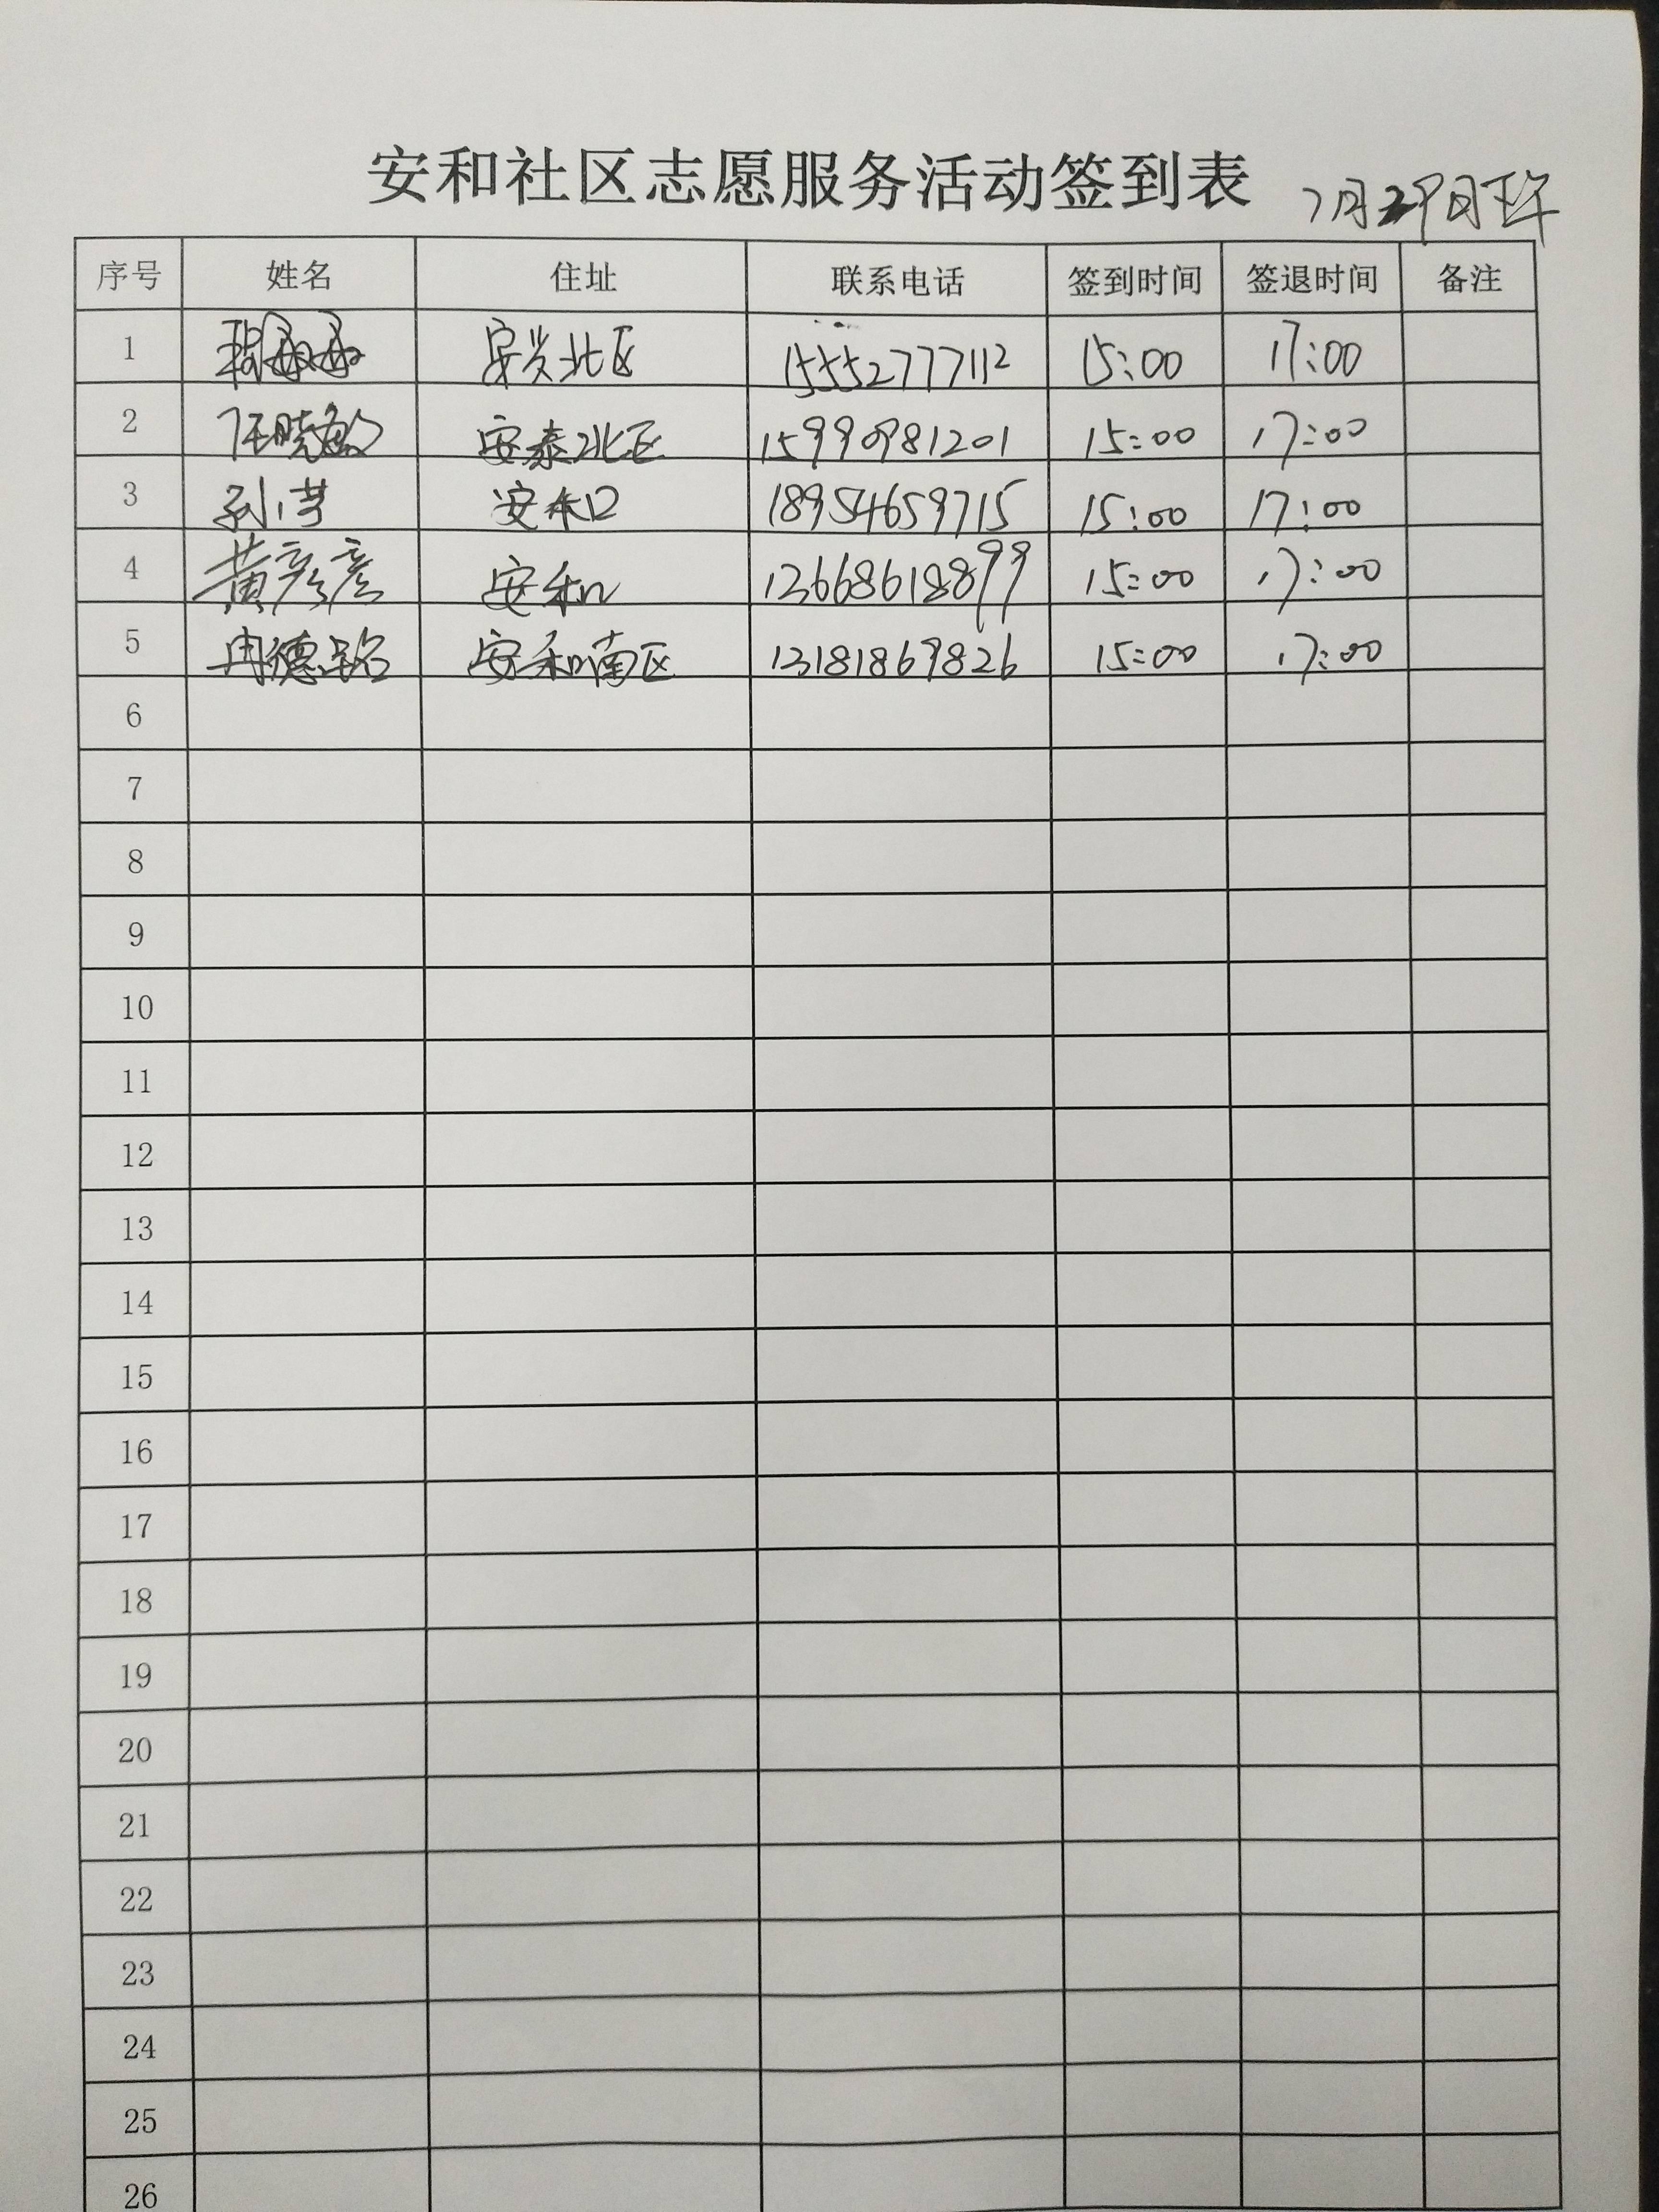 安和社区志愿服务活动签到表 7月29日下午
序号 姓名 住址 联系电话 签到时间 签退时间 备注
1 安兴北区 15552777112 15:00 17:00
2 任晓敏 安泰北区 15990981201 15:00 17:00
3 孙 安和 18954659715 15:00 17:00
4 黄彦彦 安和 12668618899 15:00 17:00
5 冉德路 安和南区 13181869826 15:00 17:00
6
7
8
9
10
11
12
13
14
15
16
17
18
19
20
21
22
23
24
25
26